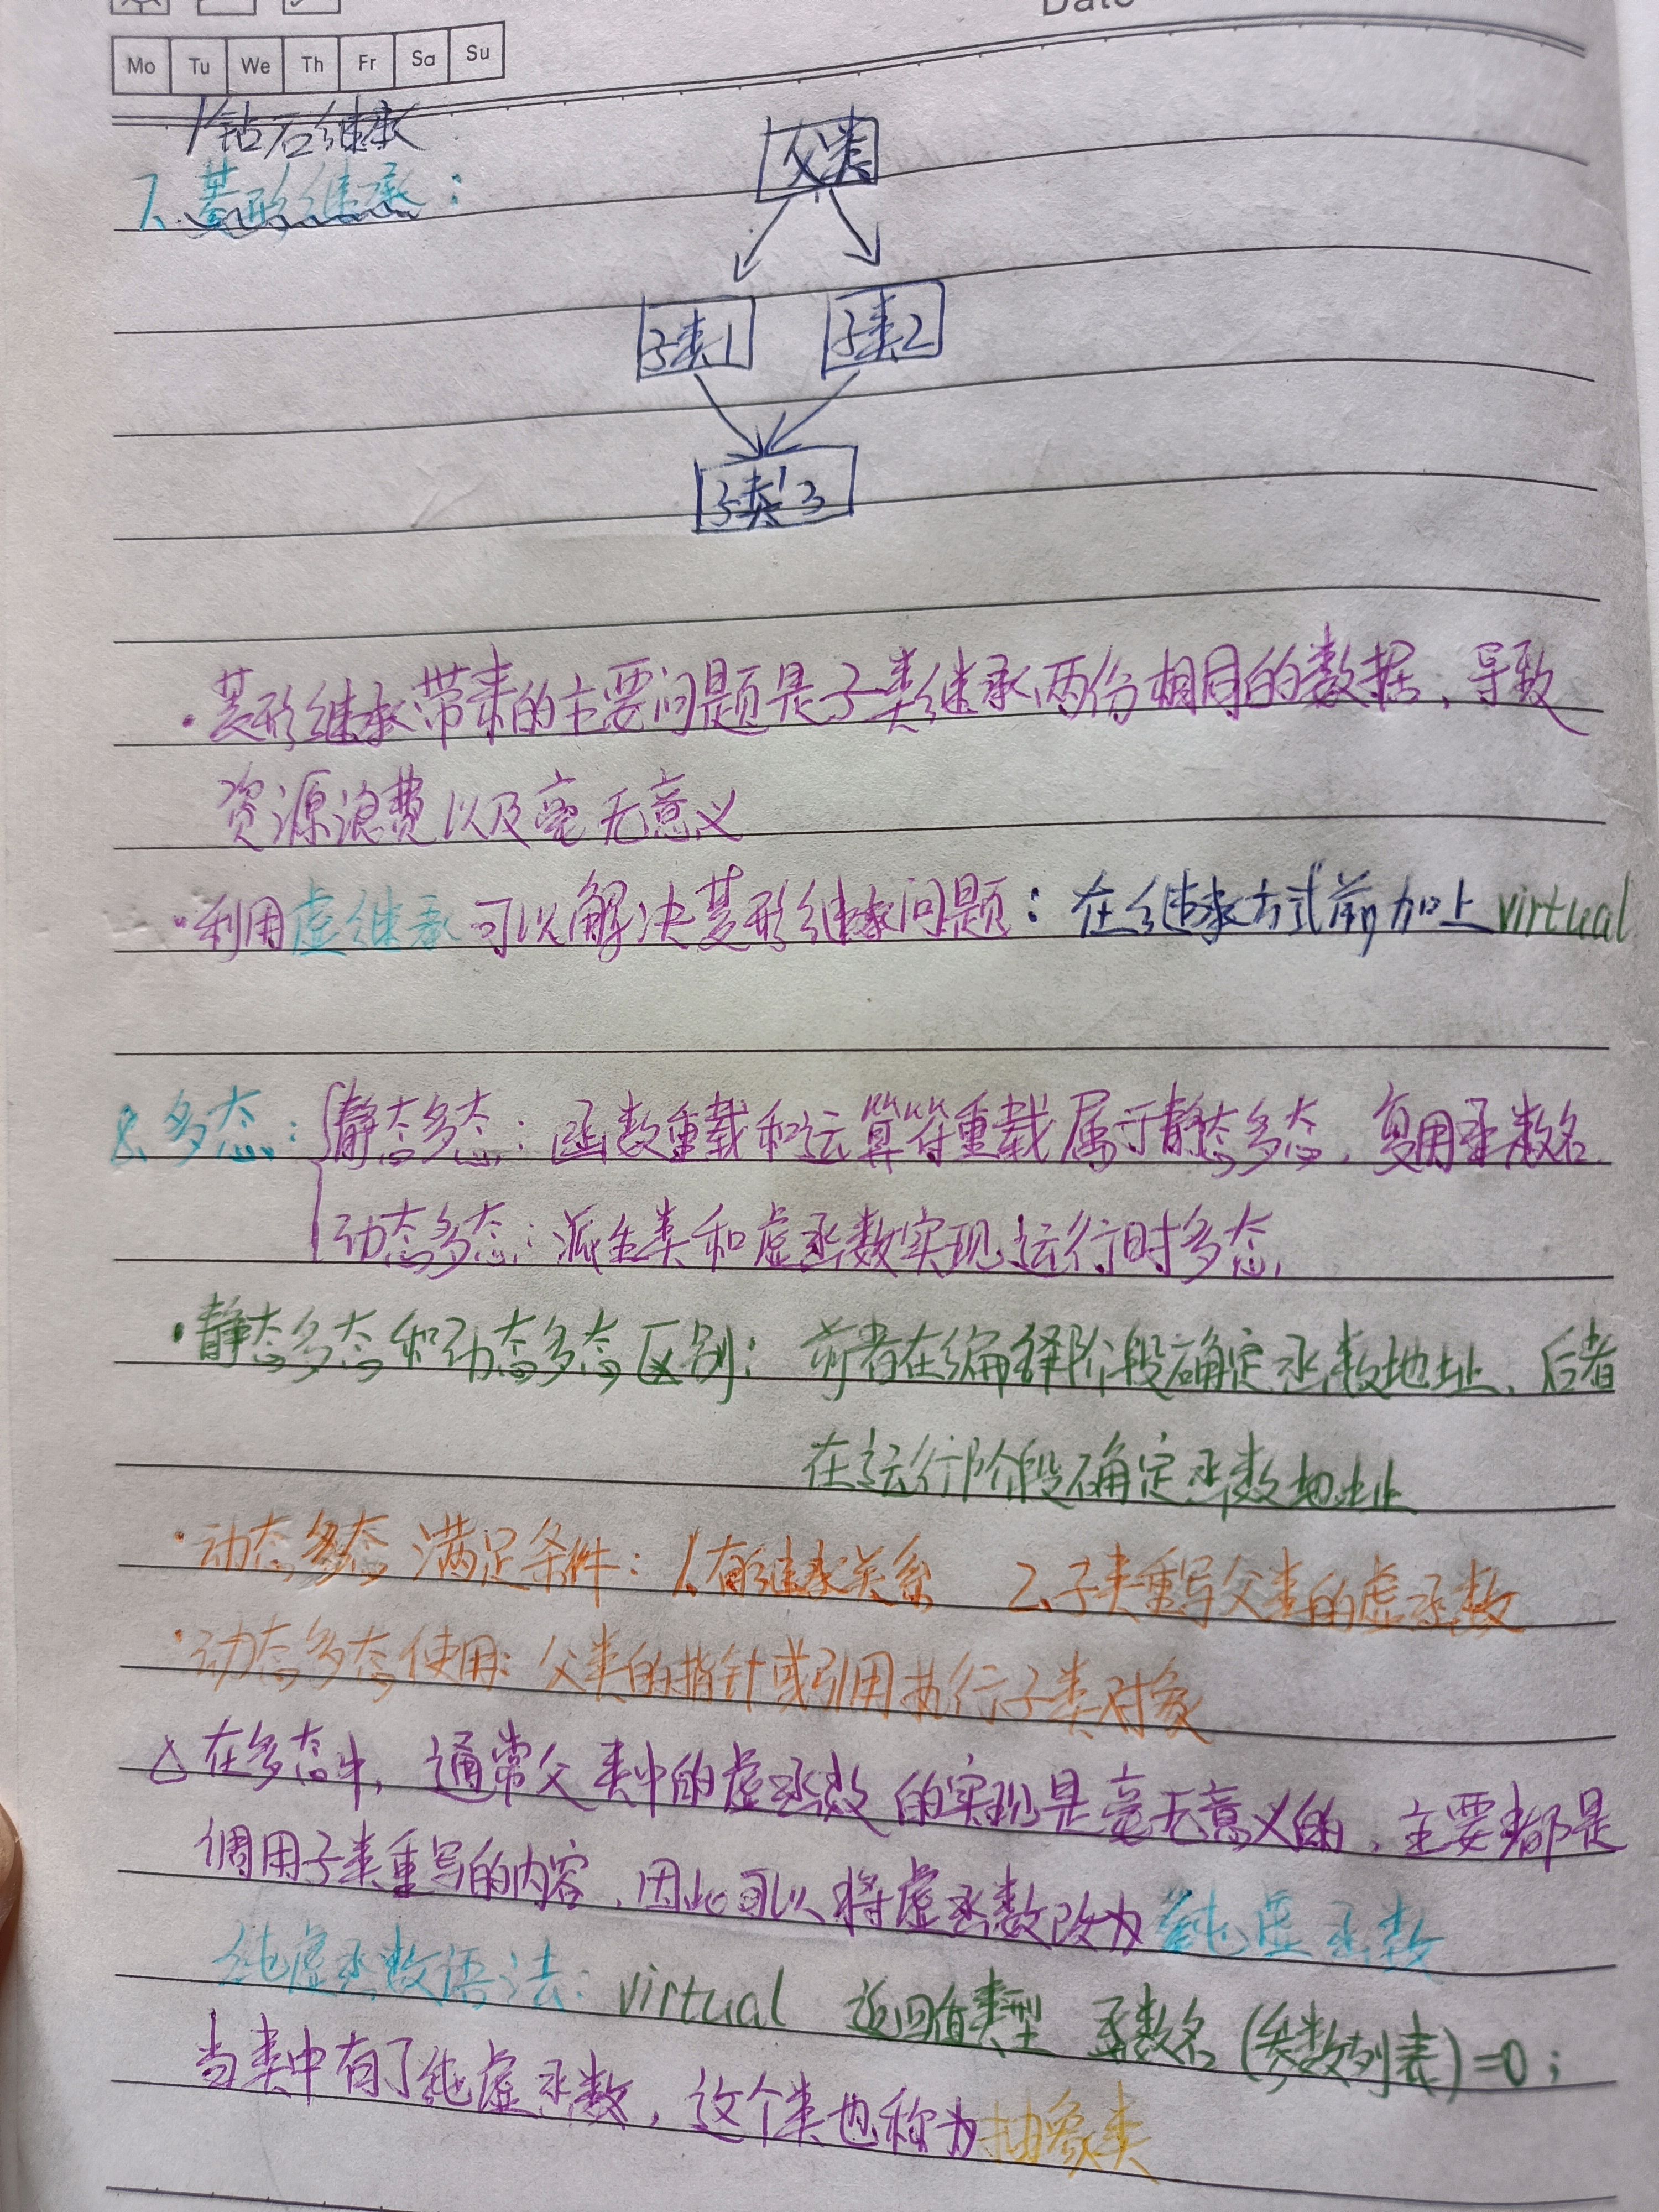 Date
Mo Tu We Th Fr Sa Su
/钻石继承
7、菱形继承：
父类
子类1 子类2
子类3
·菱形继承带来的主要问题是子类继承两份相同的数据，导致
资源浪费以及毫无意义
·利用虚继承可以解决菱形继承问题：在继承方式前加上virtual
8、多态：静态多态：函数重载和运算符重载属于静态多态，复用函数名
动态多态：派生类和虚函数实现运行时多态
·静态多态和动态多态区别：前者在编译阶段确定函数地址，后者
在运行阶段确定函数地址
·动态多态满足条件：1、有继承关系 2、子类重写父类的虚函数
·动态多态使用：父类的指针或引用执行子类对象
△在多态中，通常父类中的虚函数的实现是毫无意义的，主要都是
调用子类重写的内容，因此可以将虚函数改为纯虚函数
纯虚函数语法：virtual 返回值类型 函数名(参数列表)=0；
当类中有了纯虚函数，这个类也称为抽象类